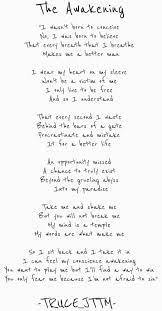 The Awakening
I wasn't born to conceive
No, I was born to believe
That every breath that I breathe
Makes me a better man
I wear my heart on my sleeve
Won't be a victim of me
I only live to be free
And so I understand
That every second I waste
Behind the bars of a gate
Procrastinate and mistake
It for a better life
An opportunity missed
A chance to truly exist
Beyond the growling abyss
Into my paradise
Take me and shake me
But you will not break me
My mind is a temple
My words are what make me
So I sit back and I take it in
I can feel my conscience awakening
You want to play me but I'll find a way to win
You only fear me because I'm not afraid to sin
-TRUCE.JTTM-